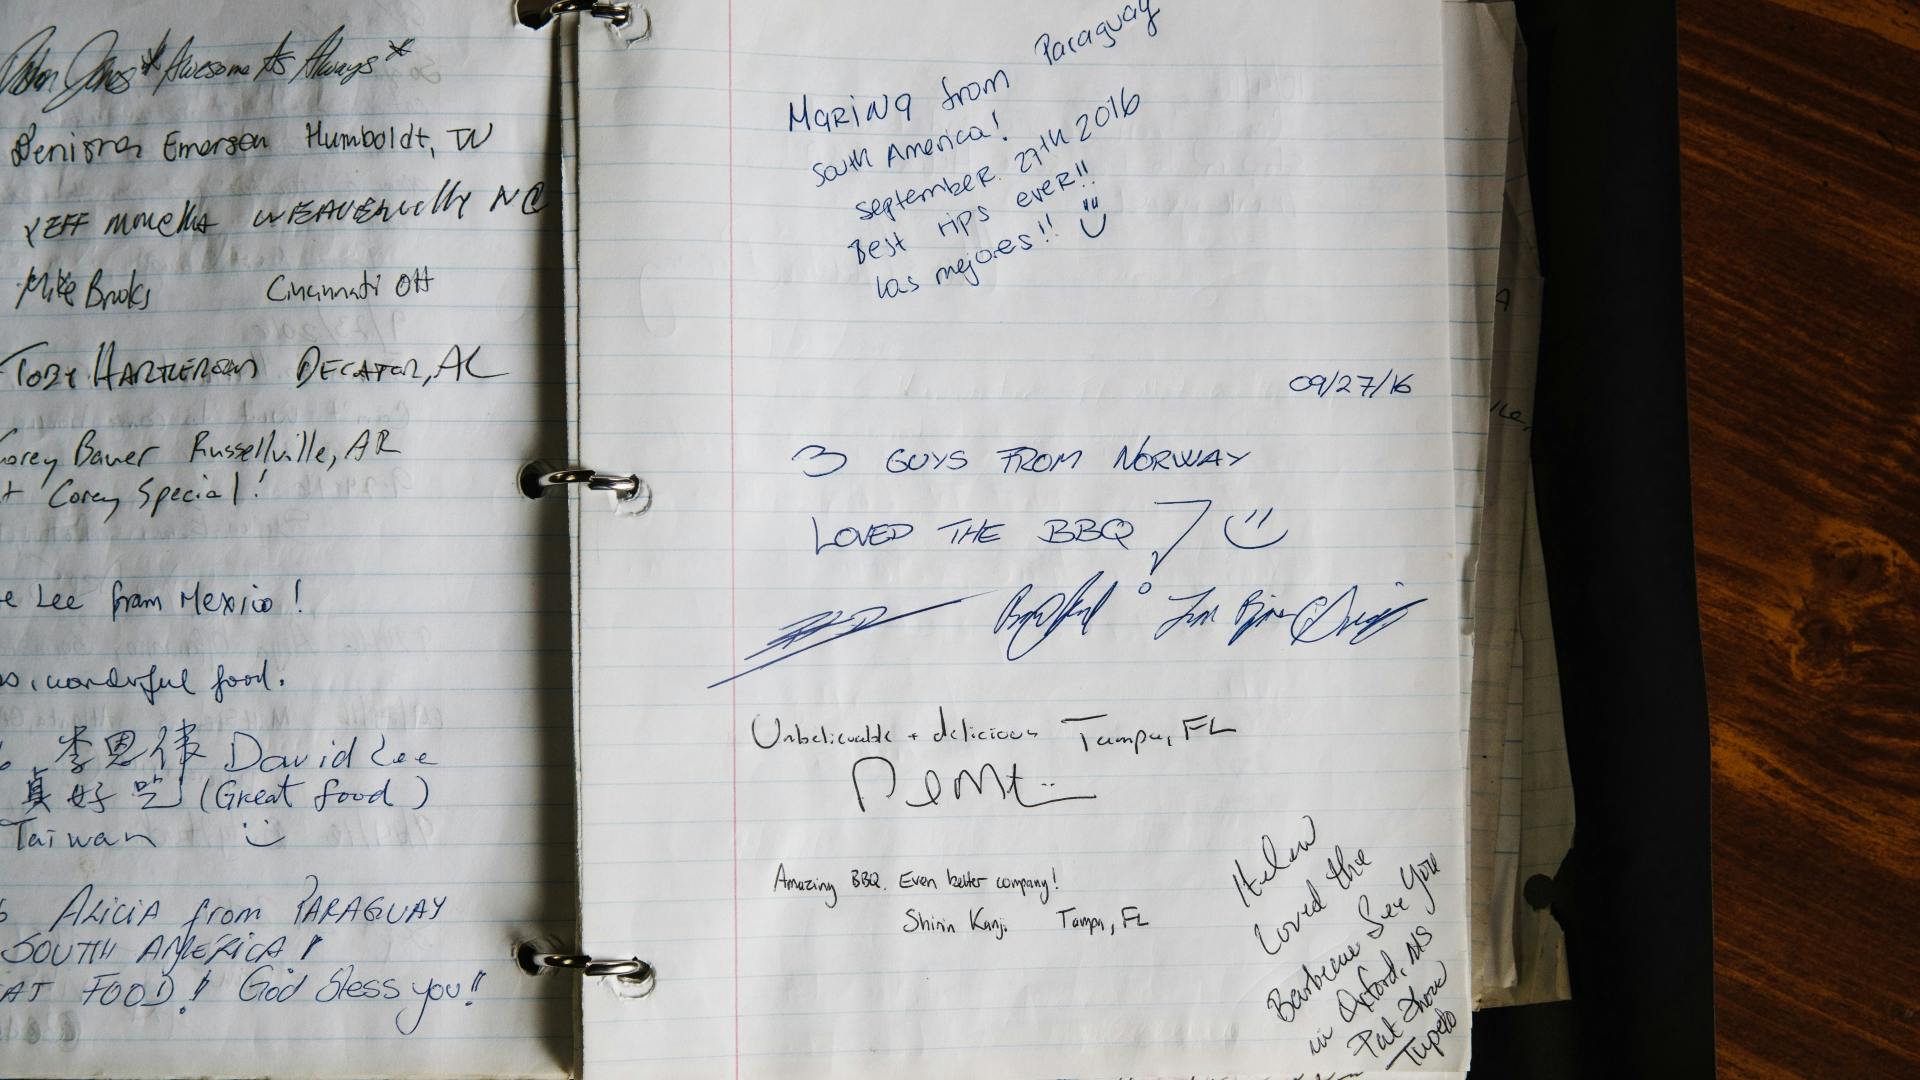 Jones *Awesome As Always*
Emerson Humboldt, TN
NC
Mike Broks Cincinnati OH
TOBY DECATOR, AL
orey Bauer Russellville, AR
t Corey Special!
e Lee from Mexico!
o, wonderful food.
6 李恩偉 David Lee
真好吃 (Great food)
Taiwan
6 ALICIA from PARAGUAY
SOUTH AMERICA!
AT FOOD! God bless you!!
Marina from Paraguay
South America!
September 27th 2016
Best rips ever!!
Las mejores!!
09/27/16
3 GUYS FROM NORWAY
LOVED THE BBQ
Unbelievable + delicious Tampa, FL
Amazing BBQ. Even better company!
Shirin Kanji Tampa, FL
Helen
Loved the
Barbecue See You
in Oxford, MS
Pat
Tupelo